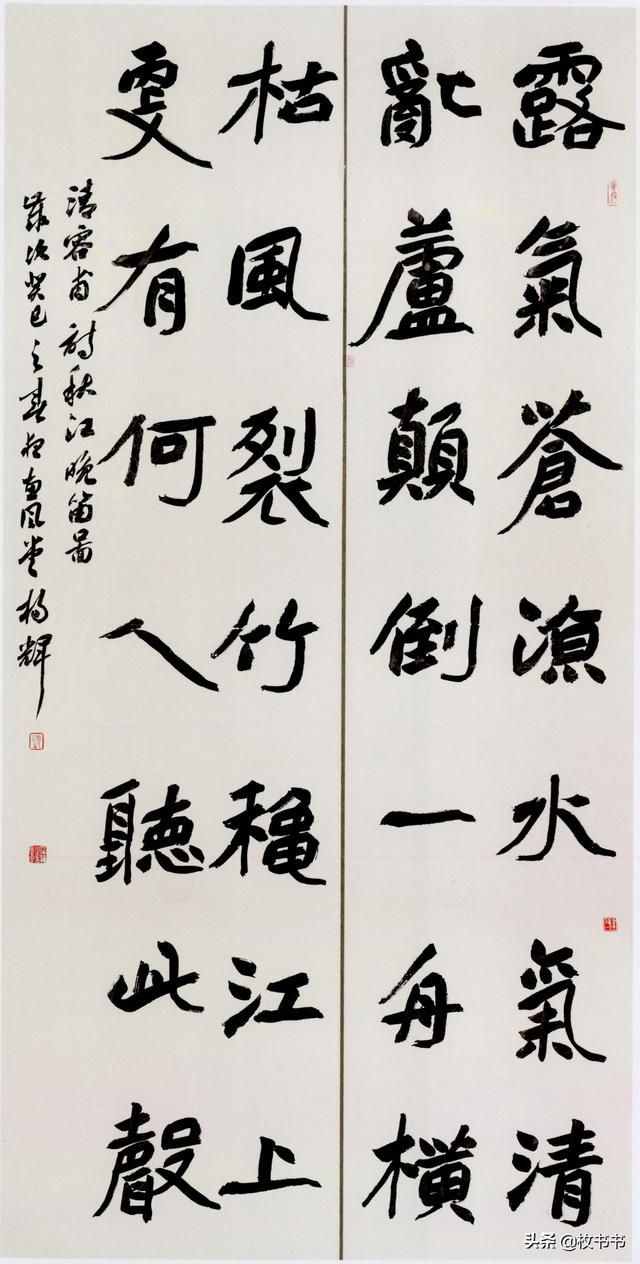 露氣蒼涼水氣清
亂蘆顛倒一舟橫
枯風裂竹穐江上
更有何人聽此聲
清容甫詩秋江晚笛圖
歲次癸巳之春風堂楊輝
头条 @枚书书